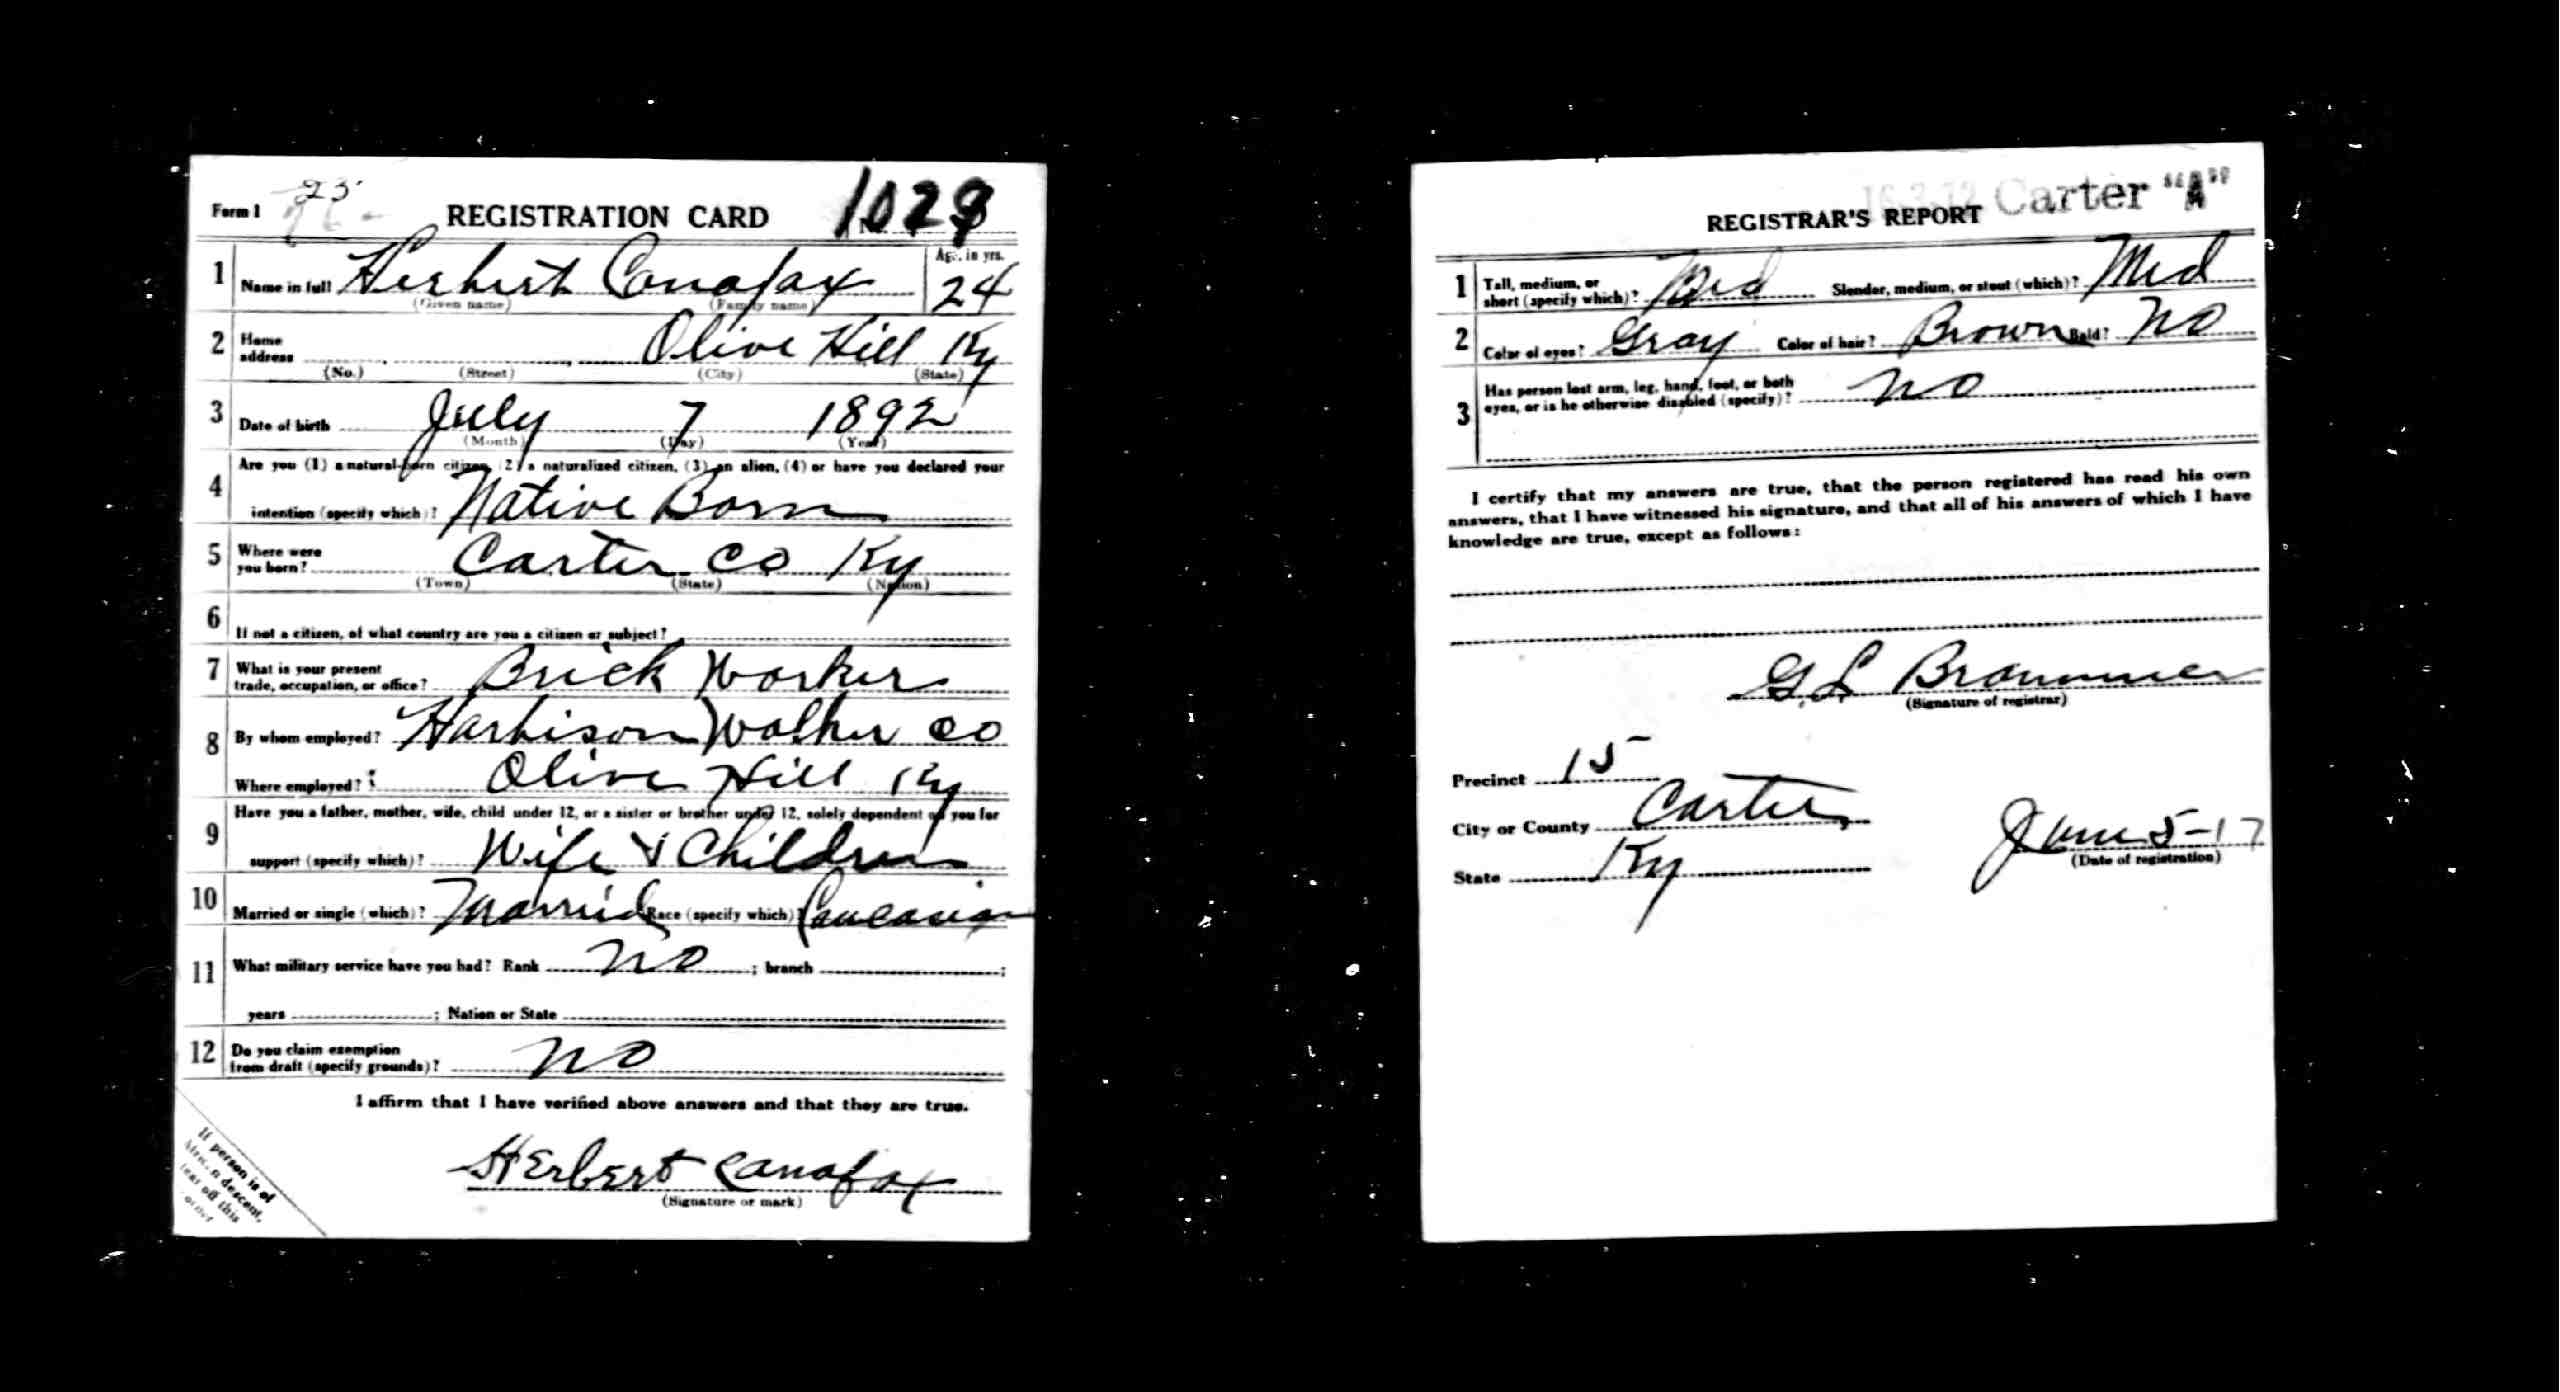 Form 1 23 REGISTRATION CARD 1029
1 Name in full Herbert Conafax Age, in yrs. 24
(Given name) (Family name)
2 Home address Olive Hill Ky
(No.) (Street) (City) (State)
3 Date of birth July 7 1892
(Month) (Day) (Year)
4 Are you (1) a natural-born citizen, (2) a naturalized citizen, (3) an alien, (4) or have you declared your
intention (specify which)? Native Born
5 Where were you born? Carter Co Ky
(Town) (State) (Nation)
6 If not a citizen, of what country are you a citizen or subject?
7 What is your present
trade, occupation, or office? Brick Worker
8 By whom employed? Harbison Walker Co
Where employed? Olive Hill Ky
9 Have you a father, mother, wife, child under 12, or a sister or brother under 12, solely dependent on you for
support (specify which)? Wife & Children
10 Married or single (which)? Married Race (specify which)? Caucasian
11 What military service have you had? Rank No ; branch ;
years ; Nation or State
12 Do you claim exemption
from draft (specify grounds)? No
I affirm that I have verified above answers and that they are true.
Herbert Canafax
(Signature or mark)
If person is of
descent,
tear off this
corner
Carter "A"
REGISTRAR'S REPORT
1 Tall, medium, or
short (specify which)? Med Slender, medium, or stout (which)? Med
2 Color of eyes? Gray Color of hair? Brown Bald? No
3 Has person lost arm, leg, hand, foot, or both
eyes, or is he otherwise disabled (specify)? No
I certify that my answers are true, that the person registered has read his own
answers, that I have witnessed his signature, and that all of his answers of which I have
knowledge are true, except as follows:
G. L Brammer
(Signature of registrar)
Precinct 15
City or County Carter
State Ky
June 5-17
(Date of registration)